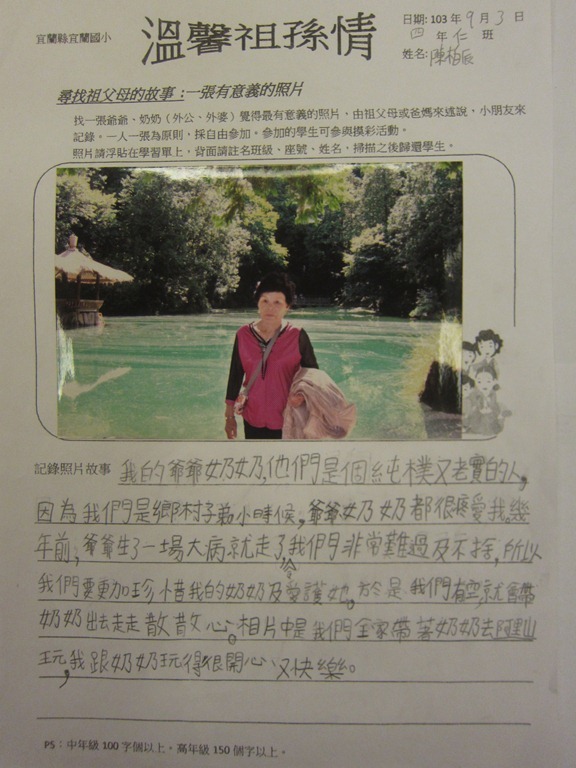 宜蘭縣宜蘭國小
溫馨祖孫情
日期: 103 年 9 月 3 日
四 年 仁 班
姓名: 陳柏辰
尋找祖父母的故事:一張有意義的照片
找一張爺爺、奶奶（外公、外婆）覺得最有意義的照片，由祖父母或爸媽來述說，小朋友來
記錄。一人一張為原則，採自由參加。參加的學生可參與摸彩活動。
照片請浮貼在學習單上，背面請註名班級、座號、姓名，掃描之後歸還學生。
記錄照片故事 我的爺爺奶奶,他們是個純樸又老實的人,
因為我們是鄉村子弟小時候,爺爺奶奶都很疼愛我,幾
年前,爺爺生了一場大病就走了,我們非常難過及不捨,所以
我們要更加珍惜我的奶奶及愛護她。於是我們有空就會帶
奶奶出去走走散散心。相片中是我們全家帶著奶奶去阿里山
玩,我跟奶奶玩得很開心又快樂。
PS：中年級 100 字個以上，高年級 150 個字以上。